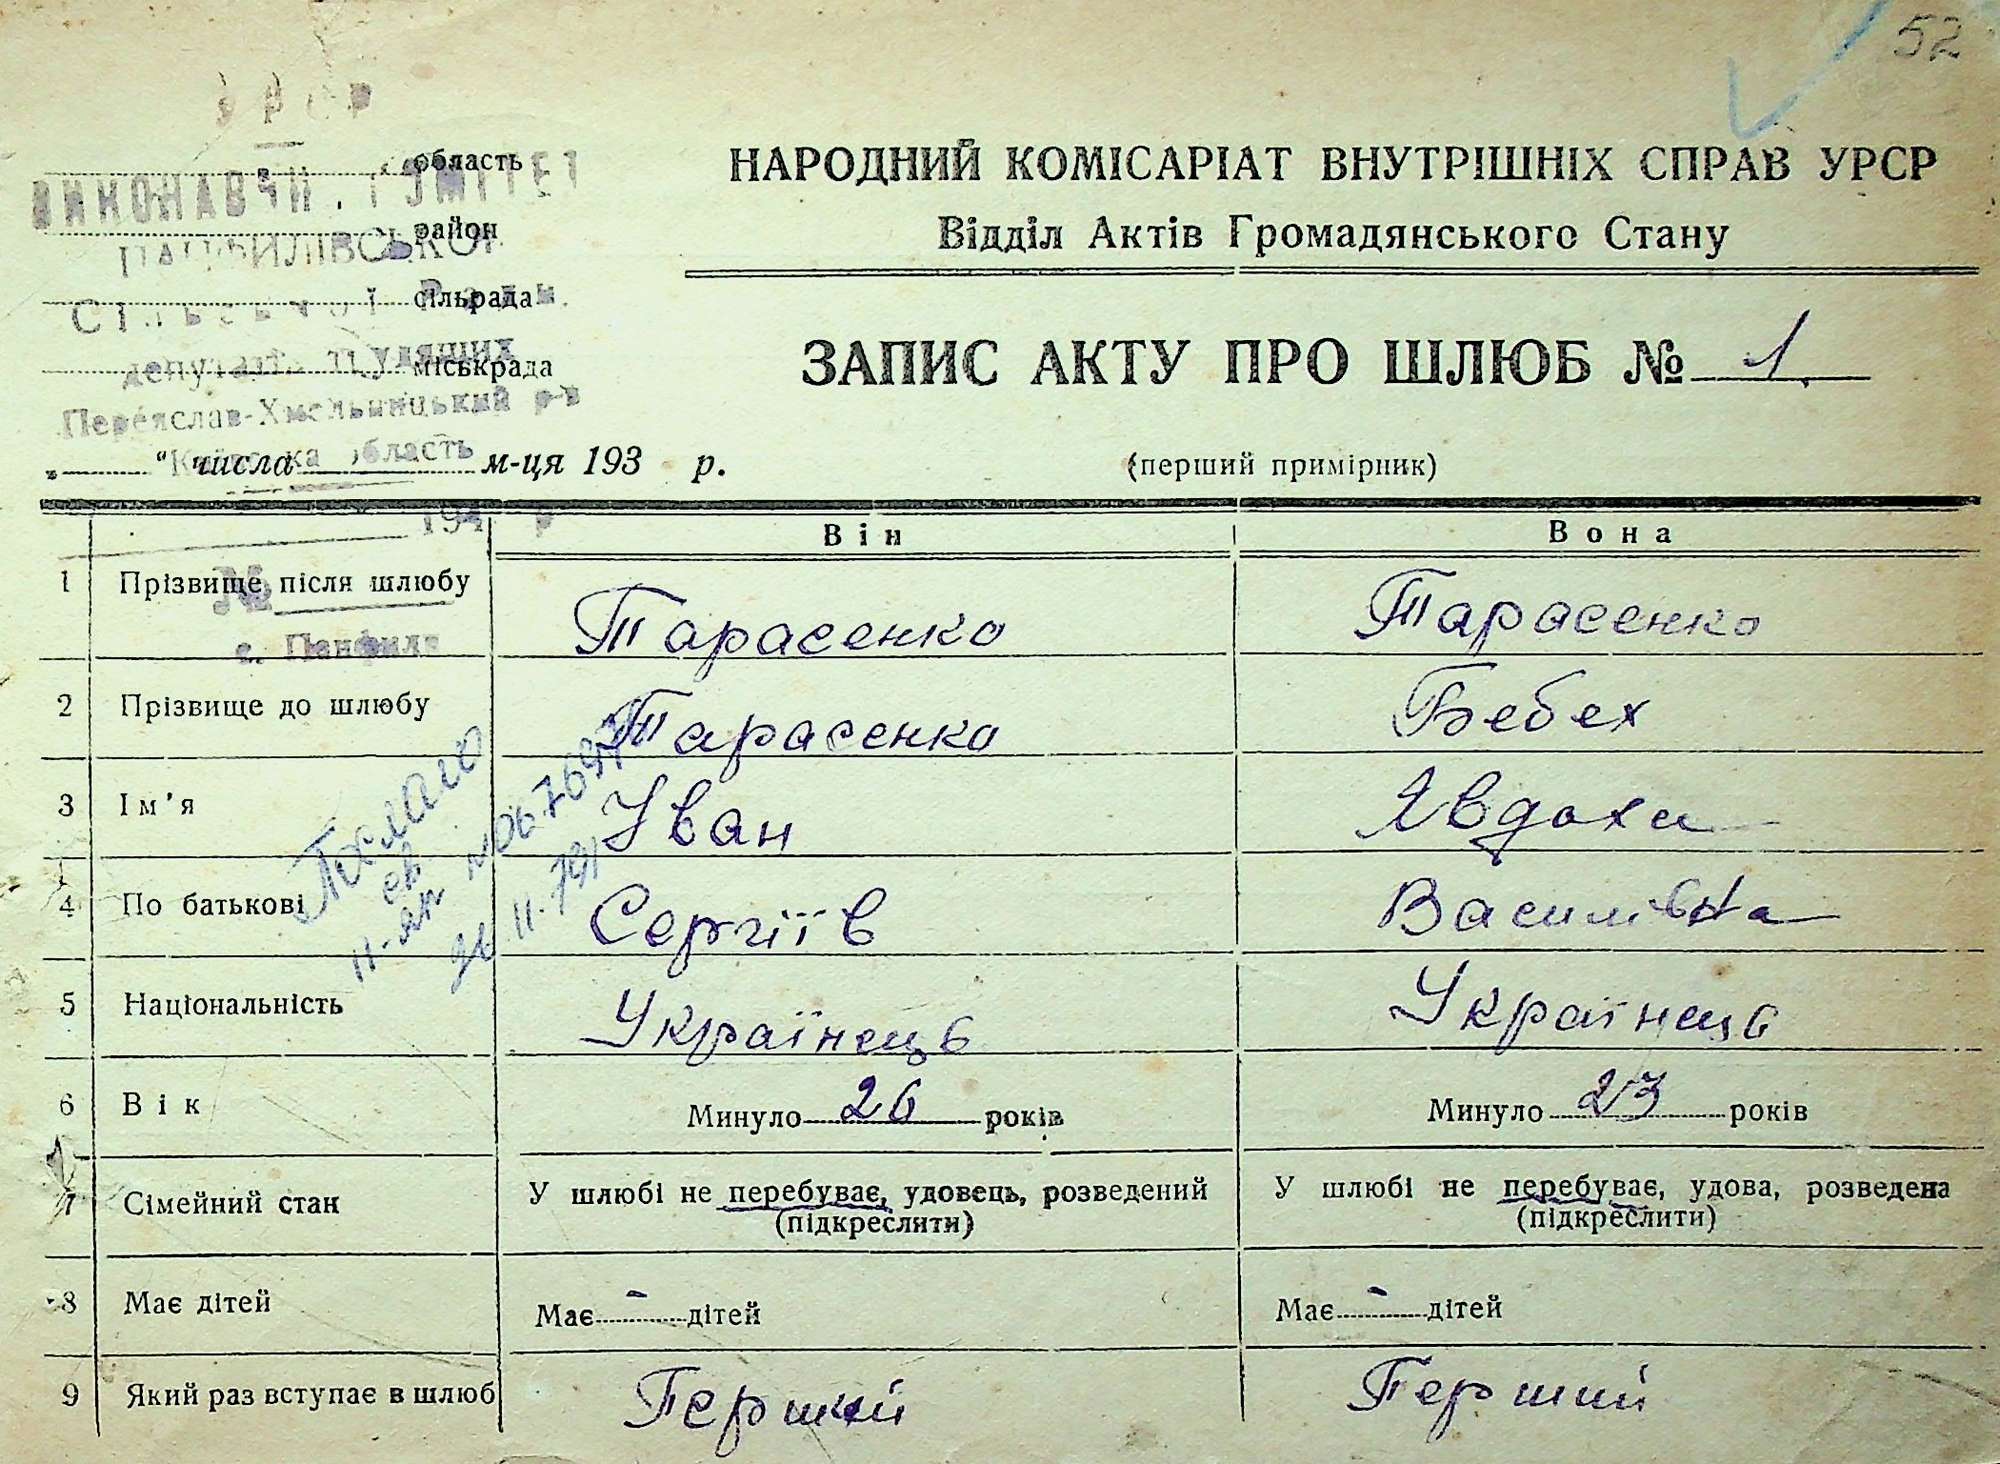 52
УРСР
область
ВИКОНАВЧИЙ КОМІТЕТ
район
ПАНФИЛІВСЬКОЇ
сільрада
Сільської Ради
депутатів трудящих
міськрада
Переяслав-Хмельницький р-н
Київська область
„ “ числа м-ця 193 р.
194 р
№
с. Панфили
НАРОДНИЙ КОМІСАРІАТ ВНУТРІШНІХ СПРАВ УРСР
Відділ Актів Громадянського Стану
ЗАПИС АКТУ ПРО ШЛЮБ № 1
(перший примірник)
Він Вона
1 Прізвище після шлюбу Тарасенко Тарасенко
2 Прізвище до шлюбу Тарасенко Бебех
3 Ім’я Іван Явдоха
4 По батькові Сергіїв Василівна
5 Національність Українець Українець
6 Вік Минуло 26 років Минуло 23 років
7 Сімейний стан У шлюбі не перебуває, удовець, розведений (підкреслити) У шлюбі не перебуває, удова, розведена (підкреслити)
8 Має дітей Має - дітей Має - дітей
9 Який раз вступає в шлюб Перший Перший
св
II-ЯП №